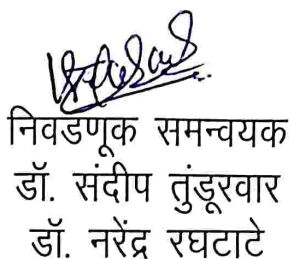 निवडणूक समन्वयक
डॉ. संदीप तुंडूरवार
डॉ. नरेंद्र रघटाटे